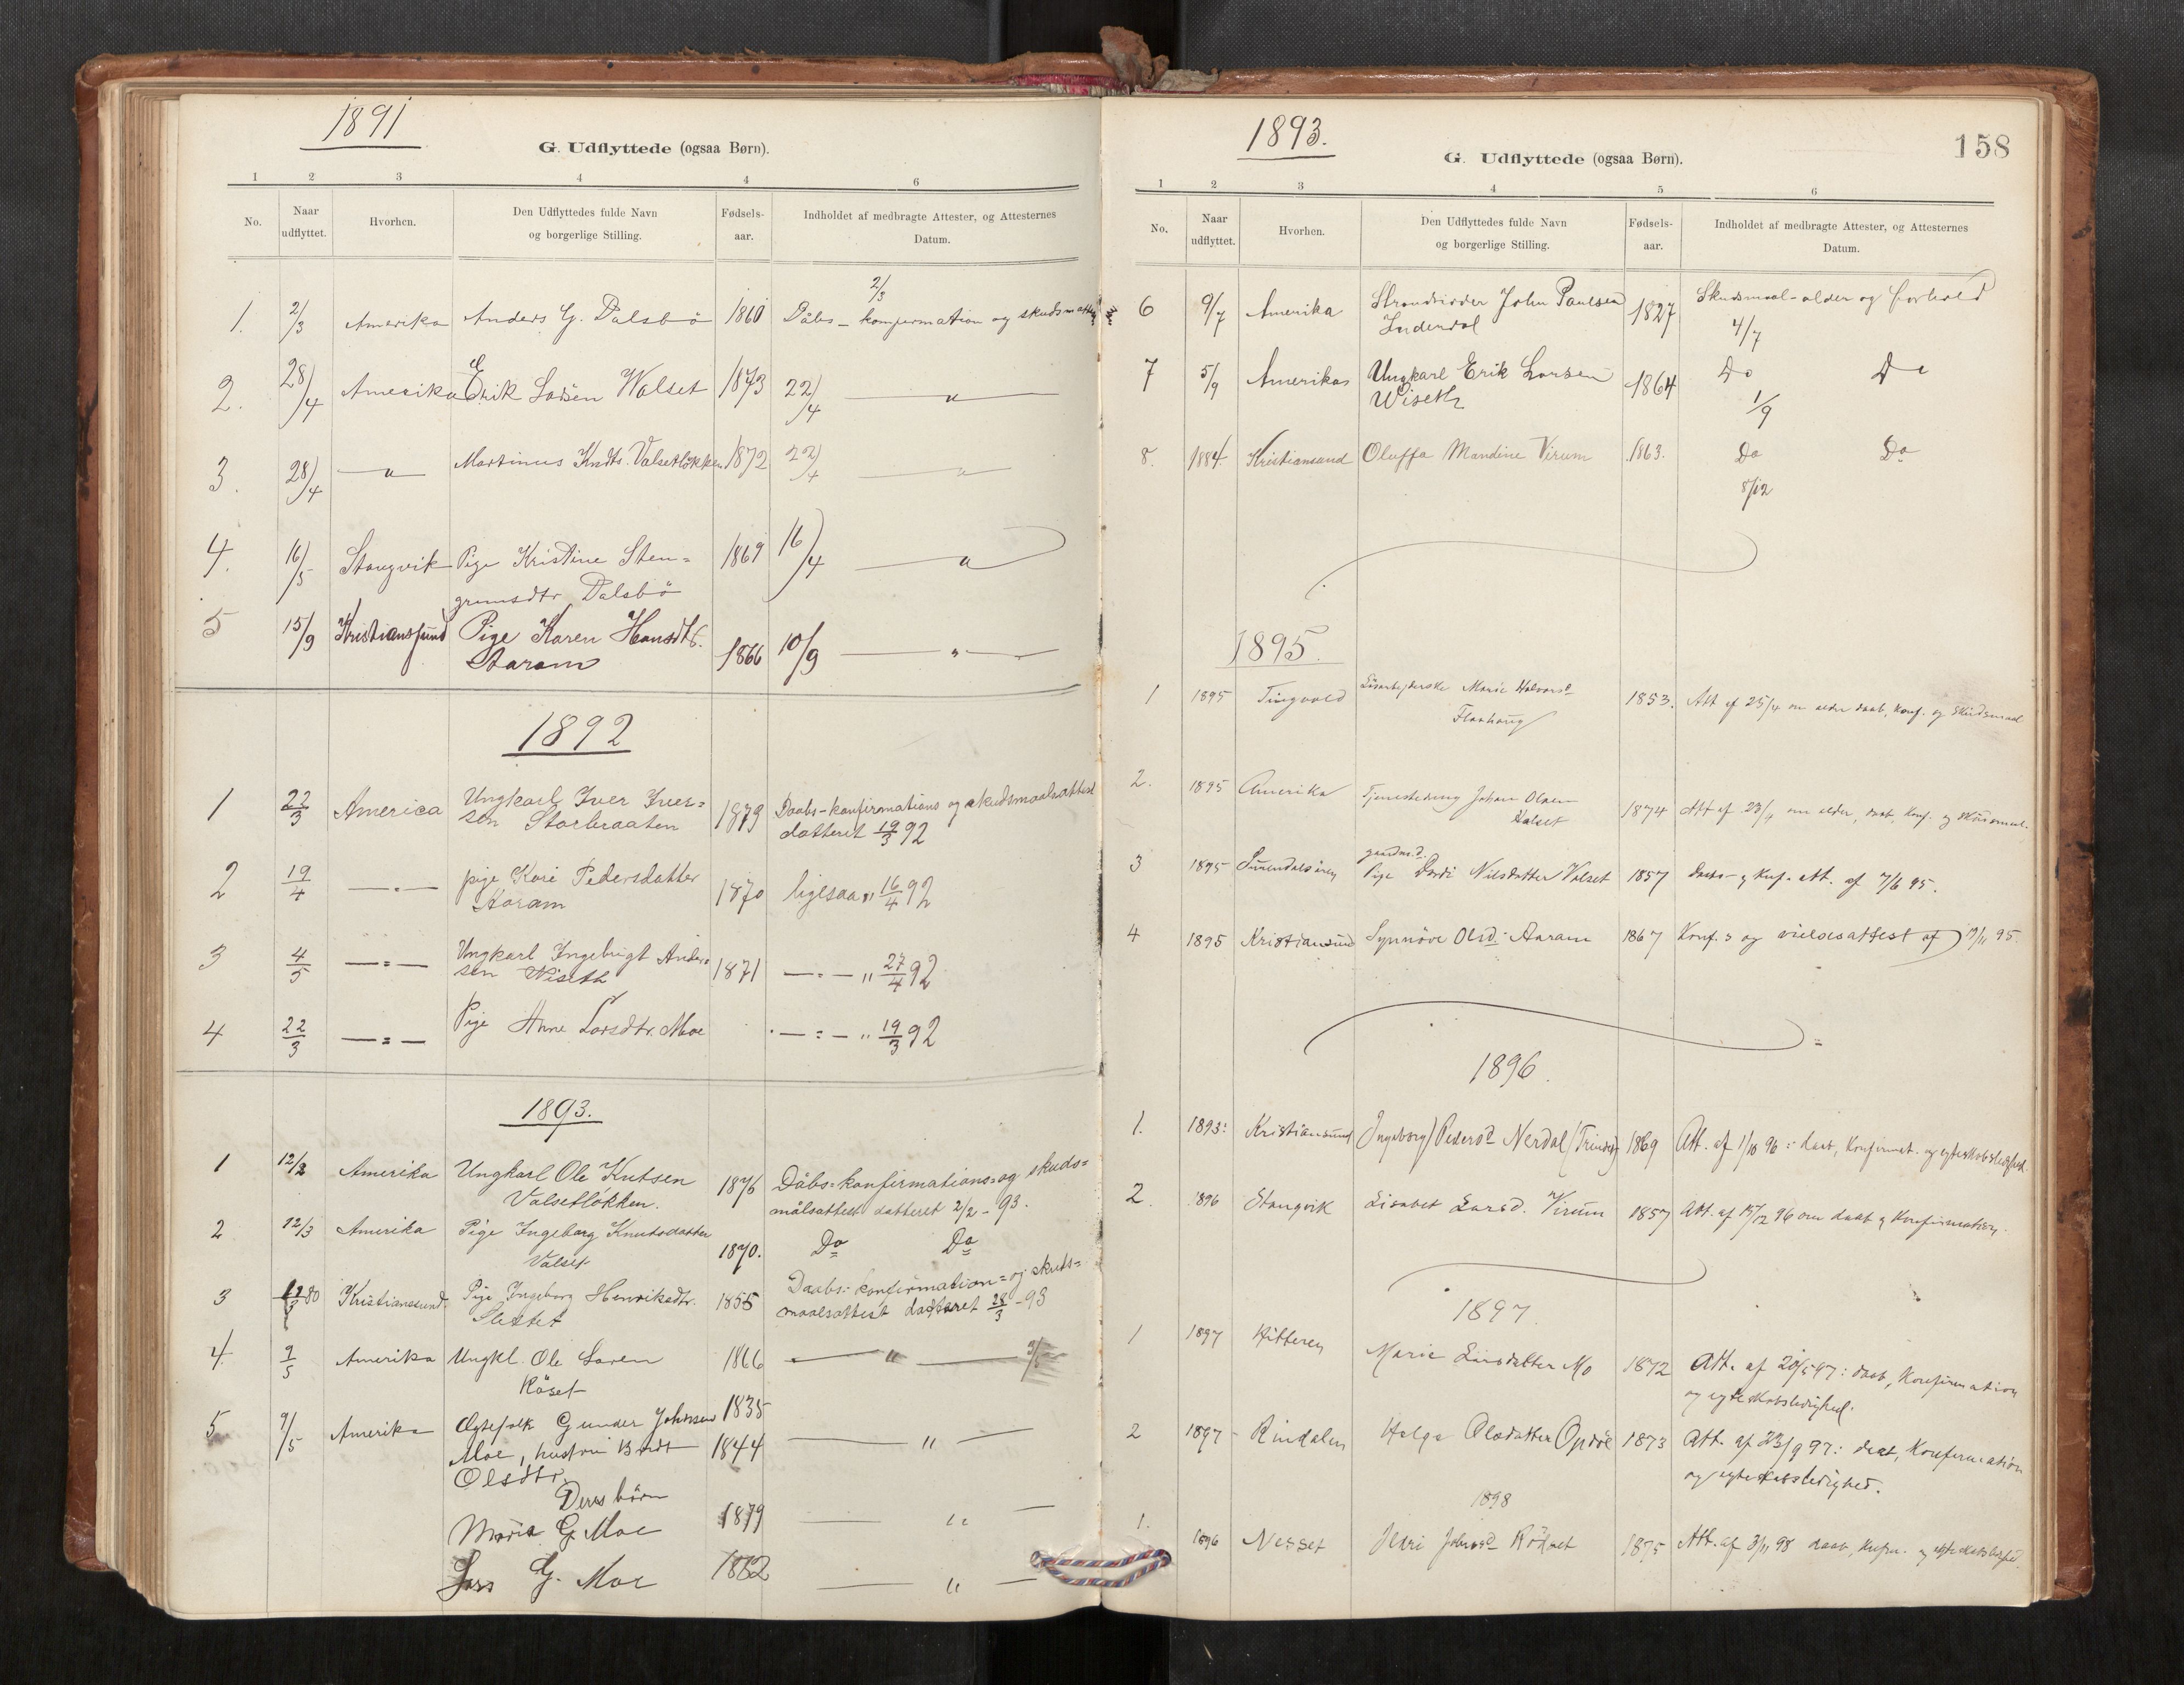 1891
G. Udflyttede (ogsaa Børn).
1 2 3 4 4 6
No. Naar udflyttet. Hvorhen. Den Udflyttedes fulde Navn og borgerlige Stilling. Fødsels-aar. Indholdet af medbragte Attester, og Attesternes Datum.
2/3
1. 2/3 Amerika Anders G. Dalsbö 1860 Dåbs- konfirmation og
2. 28/4 Amerika Erik Larsen Walset 1873 22/4 — " —
3. 28/4 — " — Martinus Valsetløkken 1872 22/4 — " —
4. 16/5 Stangvik Pige Kristine Sten= 1869 16/4 — " —
grimsdtr Dalsbö
5 15/9 Kristianssund Pige Karen Hansdtr. 1866 10/9 — " —
Aaram
1892
1 22/3 America Ungkarl Iver Iver= 1873 Daabs-konfirmations og skudsmaalsattest
sen Storbraaten datteret 19/3 92
2 19/4 — " — pige Kari Pedersdatter 1870 ligesaa " 16/4 92
Aaram
3 4/5 — " — Ungkarl Ingebrigt Ander= 1871 — " — " 27/4 92
sen Wiseth
4 22/3 — " — Pige Anne Larsdtr. Moe — " — " 19/3 92
1893.
1 12/3 Amerika Ungkarl Ole Knutsen 1876 Dåbs=konfirmations=og skuds=
Valsetløkken. målsattest datteret 2/2 - 93.
2 12/3 Amerika Pige Ingeborg Knutsdatter 1870. Do Do
Valset
3 80 Kristianssund. Pige Ingeborg Henriksdtr. 1855 Daabs=konfirmation=og skuds=
Slettet maalsattest datteret 28/3 - 93
4 9/5 Amerika Ungkl. Ole Larsen 1866 — " —
Röset
5 9/5 Amerika Ægtefolk Gunder Johnsen 1835
Moe, hustru Beret 1844 — " —
Olsdtr.
Deres börn
Marit G. Moe 1879 — " —
Lars G. Moe 1882 — " —
1893.
158
G. Udflyttede (ogsaa Børn).
1 2 3 4 5 6
No. Naar udflyttet. Hvorhen. Den Udflyttedes fulde Navn og borgerlige Stilling. Fødsels-aar. Indholdet af medbragte Attester, og Attesternes Datum.
6 9/7 Amerika Strandsidder John Paulsen 1827 Skudsmaal-alder og forhold
Inderdal 4/7
7 5/9 Amerika Ungkarl Erik Larsen 1864 Do Do
Wiseth 1/9
8. 1884. Kristiansund Oluffa Mandine Virum 1863. Do Do
8/12
1895.
1 1895 Tingvold Marie Halvorsd 1853. Att af 25/4 om alder daab, konf. og Skudsmaal
Flaahaug
2. 1895 Amerika Tjenestedreng Johan Olsen 1874 Att af 23/4 om alder, daab, Konf. og Skudsmaal.
Valset
gaardm.d.
3 1895 Surendalsören Pige Dordi Nilsdatter Valset 1857 Daabs- og Knf. att. af 7/6 95.
4 1895 Kristiansund Synnöve Olsd. Aaram 1867 Konf.s og vielsesattest af 95.
1896.
1. 1893: Kristiansund Ingeborg Pedersd Nerdal 1869 Att. af 1/10 96: daab, konfirmat. og egteskabsledighed.
2. 1896 Stangvik Lisabet Larsd. Virum 1857 Att. af 15/12 96 om daab og Konfirmation.
1897.
1 1897 Hitteren Marie Larsdatter Mo 1872 Att. af 20/5 97: daab, Konfirmation
og egteskabsledighed.
2 1897 Rindalen Helga Olsdatter Opdöl 1873 Att. af 23/9 97: daab, Konfirmation
og egteskabsledighed.
1898
1. 1896 Nesset Johnsd Rödset 1875 Att. af 3/11 98 daab, og egteskabsledighed.